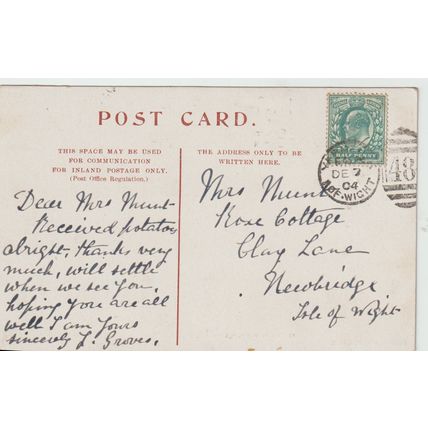 POST CARD.
THIS SPACE MAY BE USED
FOR COMMUNICATION
FOR INLAND POSTAGE ONLY.
(Post Office Regulation.)
Dear Mrs Munt
Received potatoes
alright, thanks very
much, will settle
when we see you,
hoping you are all
well I am Yours
sincerely L. Groves.
THE ADDRESS ONLY TO BE
WRITTEN HERE.
Mrs Munt
Rose Cottage
Clay Lane
Newbridge
Isle of Wight
HALF PENNY
DE 2
04
OF WIGHT
48